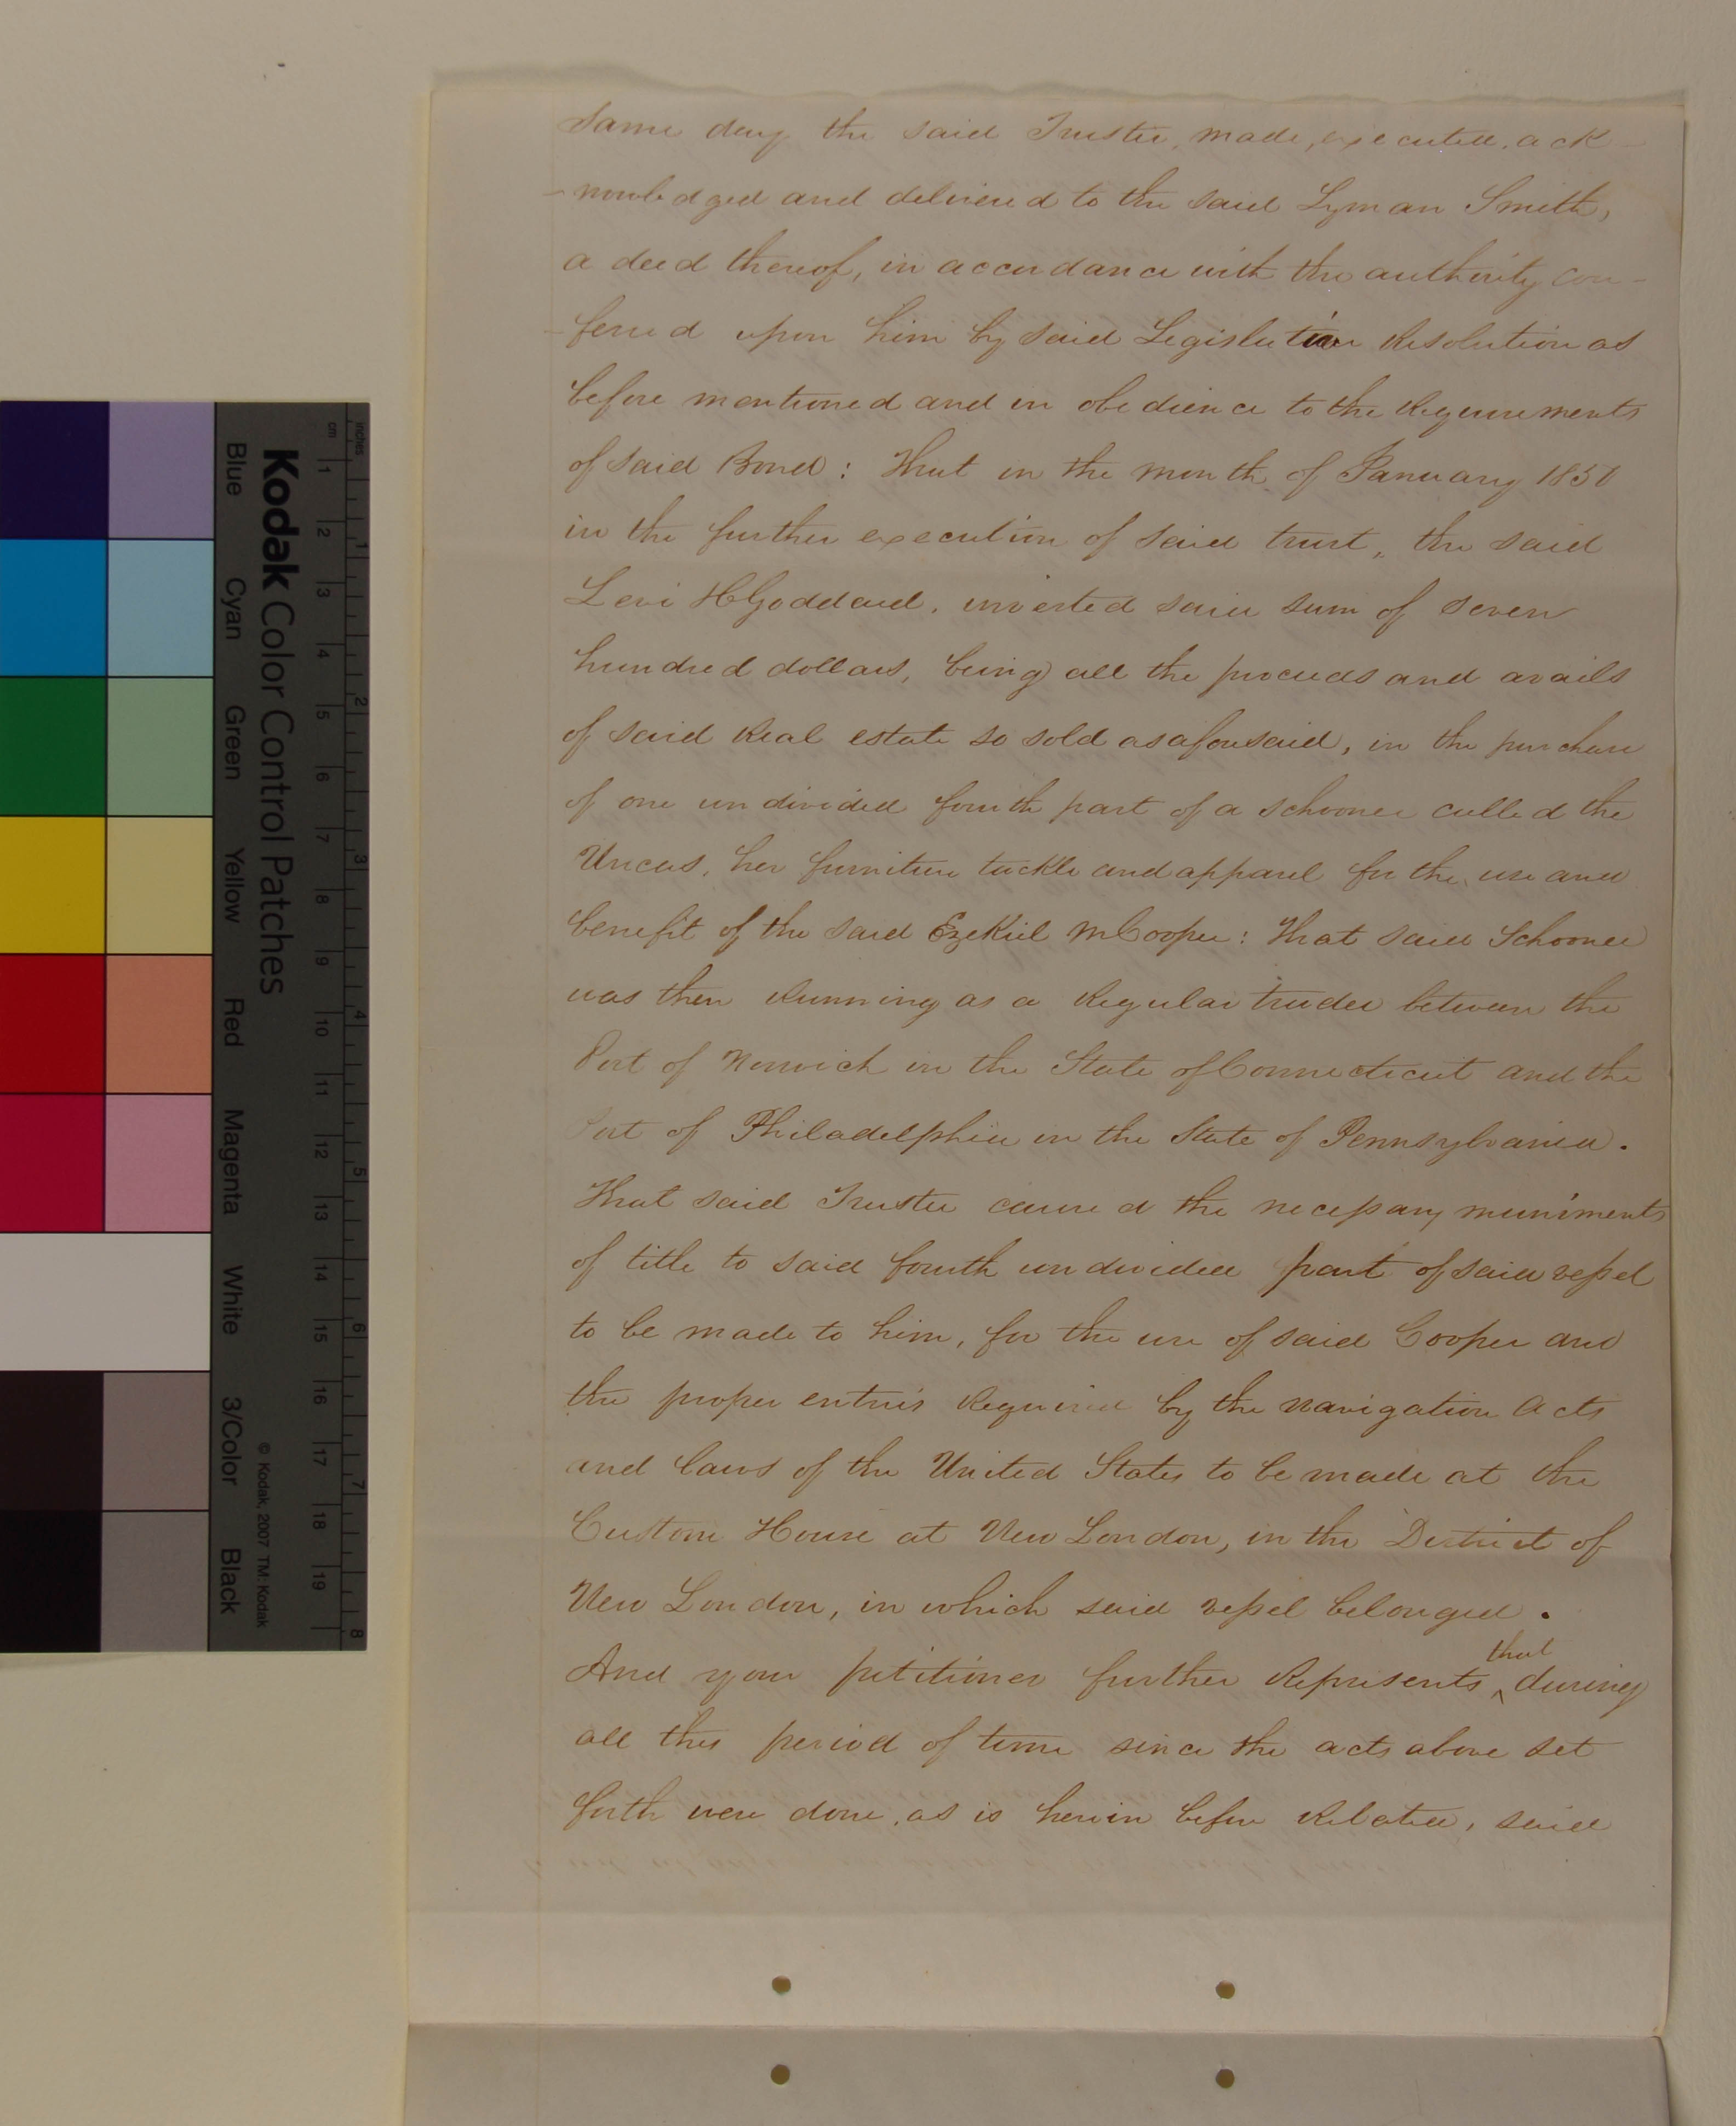 same day the said Trustee, made, executed, ack-
-nowledged and delivered to the said Lyman Smith,
a deed thereof, in accordance with the authority con-
-ferred upon him by said Legislative Resolution as
before mentioned and in obedience to the Requirements
of said Bond: That in the month of January 1850
in the further execution of said trust, the said
Levi H Goddard, invested said sum of seven
hundred dollars, being all the proceeds and avails
of said Real estate so sold as aforesaid, in the purchase
of one undivided fourth part of a schooner called the
Uncas, her furniture tackle and apparel for the use and
benefit of the said Ezekiel M Cooper: That said Schooner
was then Running as a Regular trader between the
Port of Norwich in the State of Connecticut and the
Port of Philadelphia in the State of Pennsylvania.
That said Trustee caused the necessary muniments
of title to said fourth undivided part of said vessel
to be made to him, for the use of said Cooper and
the proper entries Required by the navigation Acts
and laws of the United States to be made at the
Custom House at New London, in the District of
New London, in which said vessel belonged.
And your petitioner further Represents ^that during
all this period of time since the acts above set
forth were done, as is herein before Related, said
Kodak Color Control Patches
Blue Cyan Green Yellow Red Magenta White 3/Color Black
© Kodak, 2007 TM: Kodak
inches 1 2 3 4 5 6 7 8
cm 1 2 3 4 5 6 7 8 9 10 11 12 13 14 15 16 17 18 19